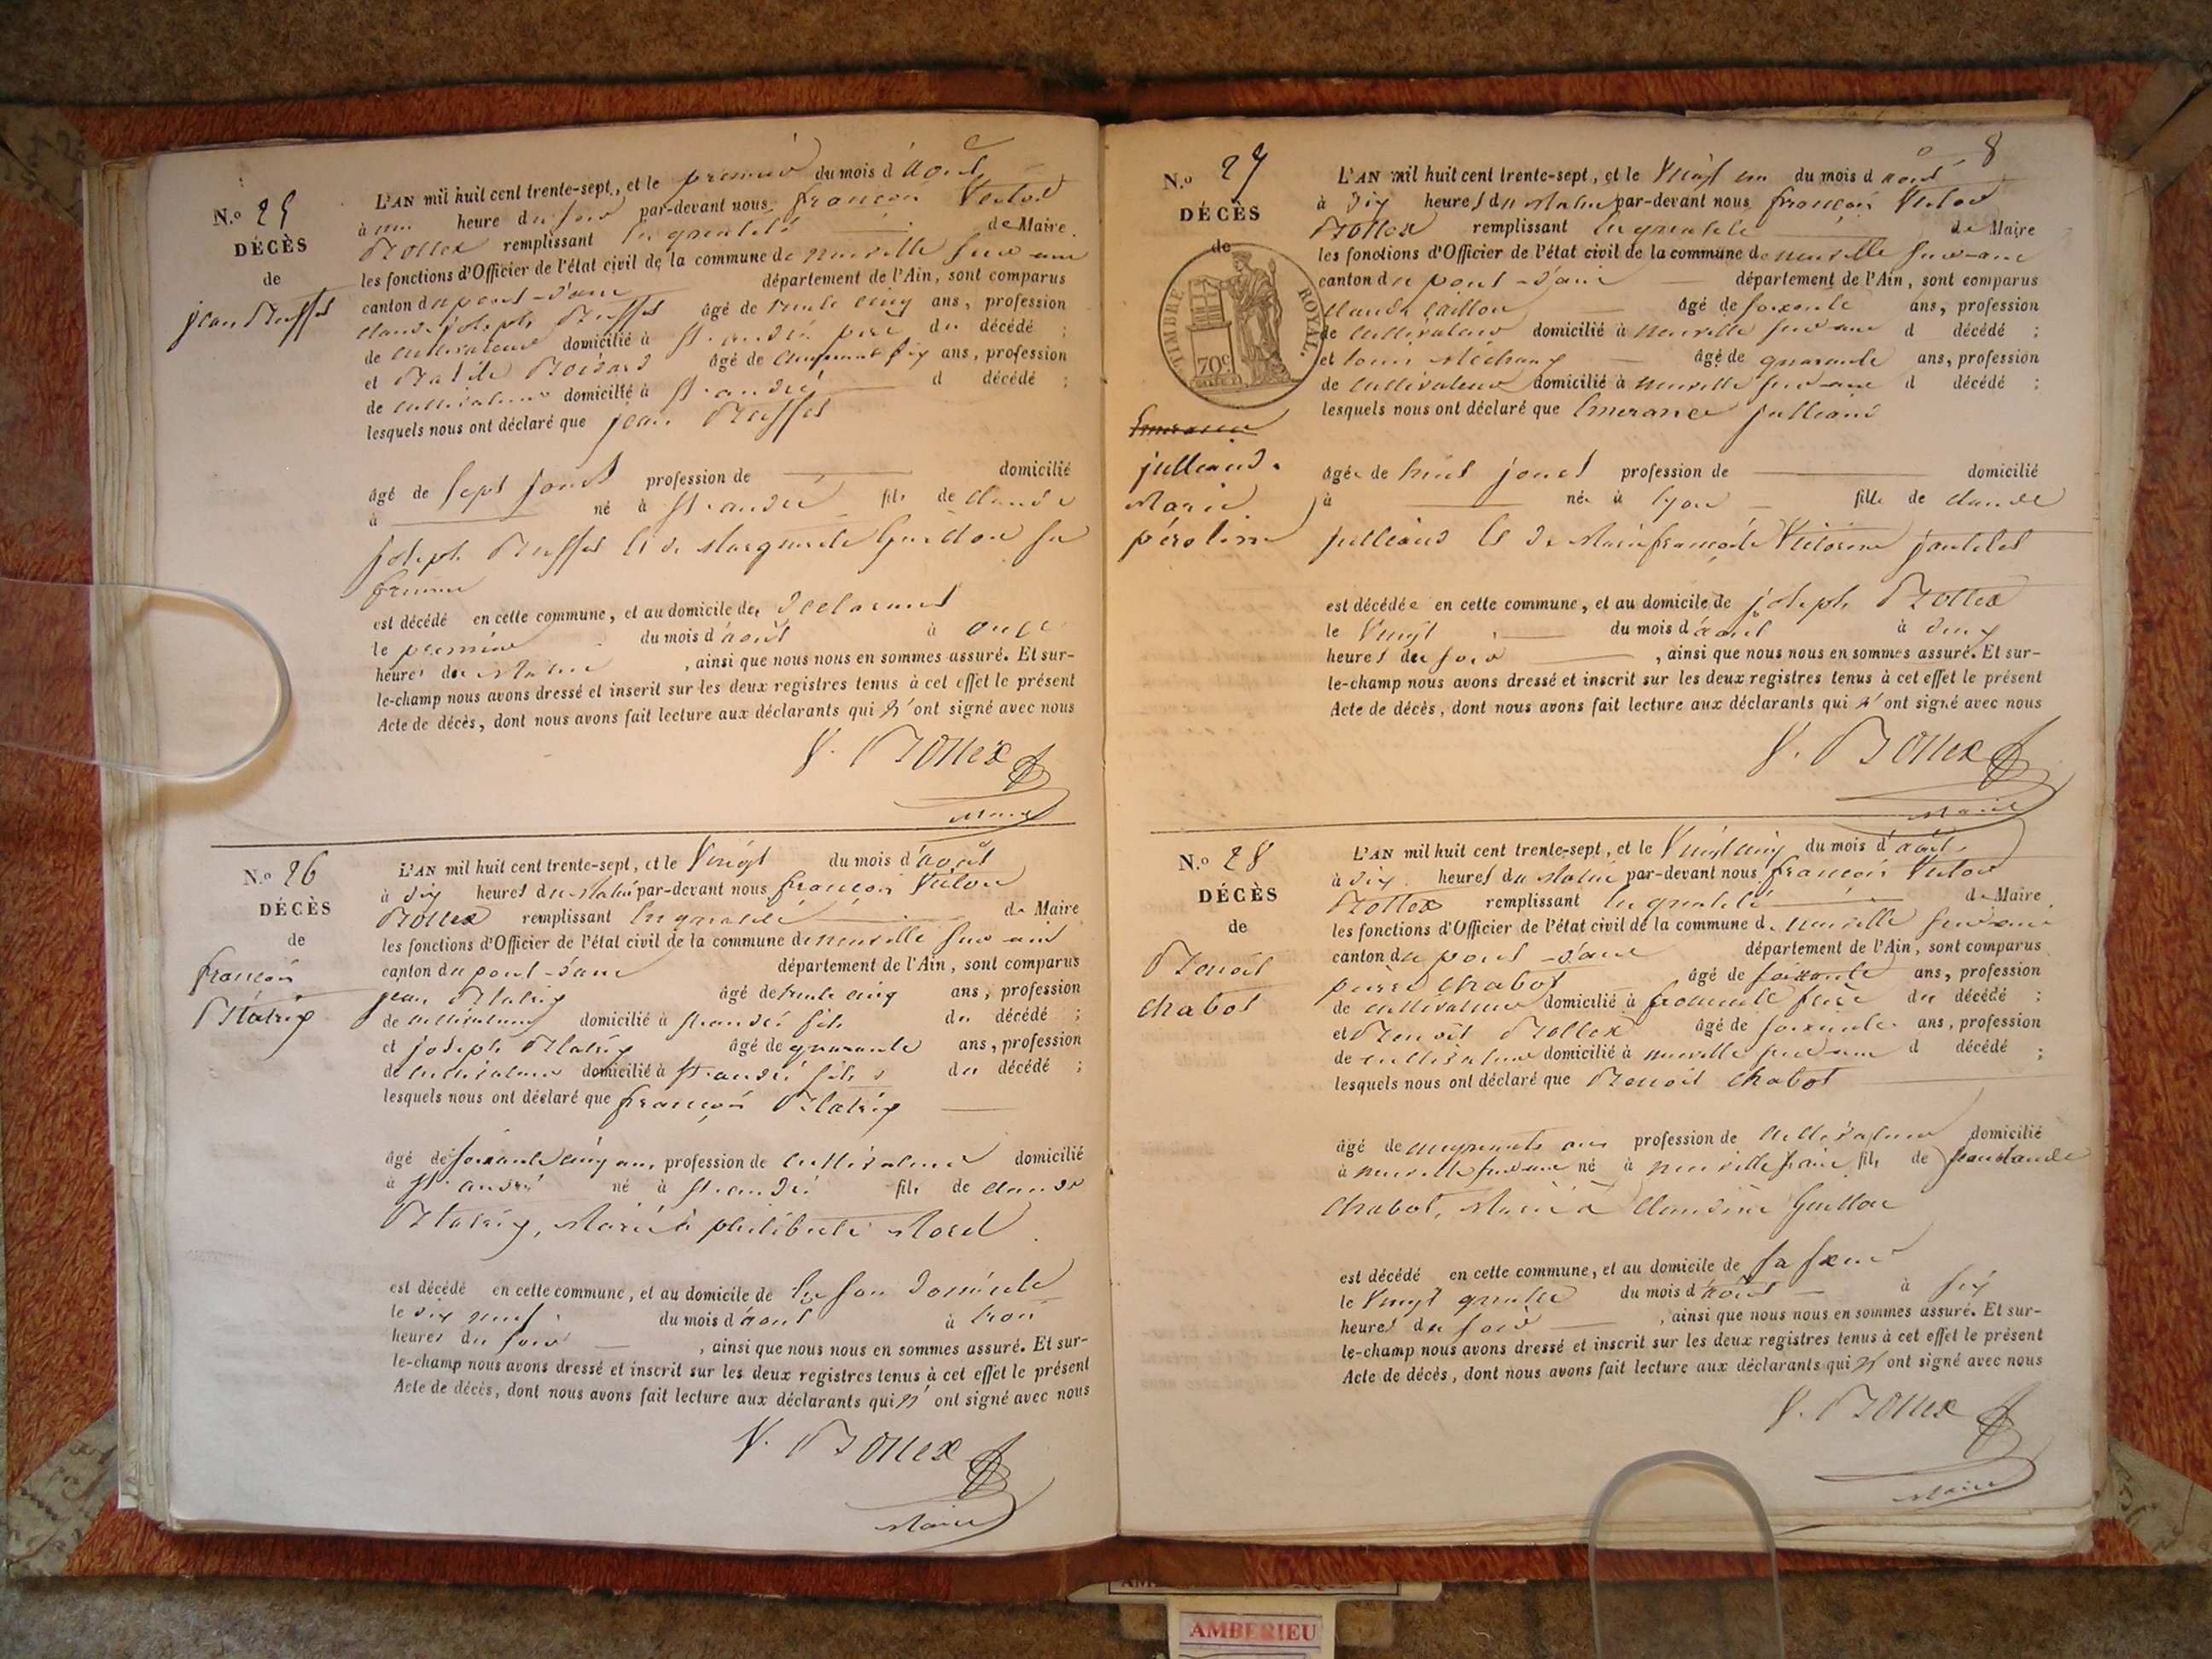 N.o 25
DÉCÈS
de
jean Buffet
L'AN mil huit cent trente-sept, et le premier du mois d'août
à une heure du soir par-devant nous françois Victor
Bollex remplissant en qualité de Maire
les fonctions d'Officier de l'état civil de la commune de neuville sur ain
canton du pont-d'ain département de l'Ain, sont comparus
claude joseph Buffet âgé de trente cinq ans, profession
de cultivateur domicilié à st. andré père du décédé ;
et âgé de cinquante six ans, profession
de cultivateur domicilié à st. andré d décédé ;
lesquels nous ont déclaré que jean Buffet
âgé de sept jours profession de domicilié
à né à st. andré fils de claude
joseph Buffet et de Marguerite Guillon sa
femme
est décédé en cette commune, et au domicile des déclarants
le premier du mois d'août à onze
heures du Matin , ainsi que nous nous en sommes assuré. Et sur-
le-champ nous avons dressé et inscrit sur les deux registres tenus à cet effet le présent
Acte de décès, dont nous avons fait lecture aux déclarants qui n'ont signé avec nous
V. Bollex
Maire
N.o 26
DÉCÈS
de
françois
L'AN mil huit cent trente-sept, et le Vingt du mois d'août
à dix heures du Matin par-devant nous françois Victor
Bollex remplissant en qualité de Maire
les fonctions d'Officier de l'état civil de la commune de neuville sur ain
canton du pont-d'ain département de l'Ain, sont comparus
jean âgé de trente cinq ans, profession
de cultivateur domicilié à st. andré fils du décédé ;
et joseph âgé de quarante ans, profession
de cultivateur domicilié à st. andré fils du décédé ;
lesquels nous ont déclaré que françois
âgé de soixante cinq ans profession de cultivateur domicilié
à st. andré né à st. andré fils de claude
Marié à philiberte Morel
est décédé en cette commune, et au domicile de en son domicile
le dix neuf du mois d'août à trois
heures du soir , ainsi que nous nous en sommes assuré. Et sur-
le-champ nous avons dressé et inscrit sur les deux registres tenus à cet effet le présent
Acte de décès, dont nous avons fait lecture aux déclarants qui n'ont signé avec nous
V. Bollex
Maire
8
N.o 27
DÉCÈS
de
TIMBRE ROYAL.
70c
Emerance
julliand.
Marie
pérotine
L'AN mil huit cent trente-sept, et le Vingt un du mois d'août
à dix heures du Matin par-devant nous françois Victor
Bollex remplissant en qualité de Maire
les fonctions d'Officier de l'état civil de la commune de neuville sur ain
canton du pont-d'ain département de l'Ain, sont comparus
claude caillon âgé de soixante ans, profession
de cultivateur domicilié à neuville sur ain d décédé ;
et louis âgé de quarante ans, profession
de cultivateur domicilié à neuville sur ain d décédé ;
lesquels nous ont déclaré que Emerance julliand
âgée de huit jours profession de domicilié
à née à lyon fille de claude
julliand et de Marie françoise Victorine
est décédée en cette commune, et au domicile de joseph Bollex
le Vingt du mois d'août à deux
heures du soir , ainsi que nous nous en sommes assuré. Et sur-
le-champ nous avons dressé et inscrit sur les deux registres tenus à cet effet le présent
Acte de décès, dont nous avons fait lecture aux déclarants qui n'ont signé avec nous
V. Bollex
Maire
N.o 28
DÉCÈS
de
Benoit
chabot
L'AN mil huit cent trente-sept, et le Vingt cinq du mois d'août
à dix heures du Matin par-devant nous françois Victor
Bollex remplissant en qualité de Maire
les fonctions d'Officier de l'état civil de la commune de neuville sur ain
canton du pont-d'ain département de l'Ain, sont comparus
pierre chabot âgé de soixante ans, profession
de cultivateur domicilié à fromente frère du décédé ;
et Benoit Bollex âgé de soixante ans, profession
de cultivateur domicilié à neuville sur ain d décédé ;
lesquels nous ont déclaré que Benoit chabot
âgé de cinquante ans profession de cultivateur domicilié
à neuville sur ain né à neuville s ain fils de jean claude
chabot, Marié à claudine Guillon
est décédé en cette commune, et au domicile de sa sœur
le Vingt quatre du mois d'août à six
heures du soir , ainsi que nous nous en sommes assuré. Et sur-
le-champ nous avons dressé et inscrit sur les deux registres tenus à cet effet le présent
Acte de décès, dont nous avons fait lecture aux déclarants qui n'ont signé avec nous
V. Bollex
Maire
AMBERIEU